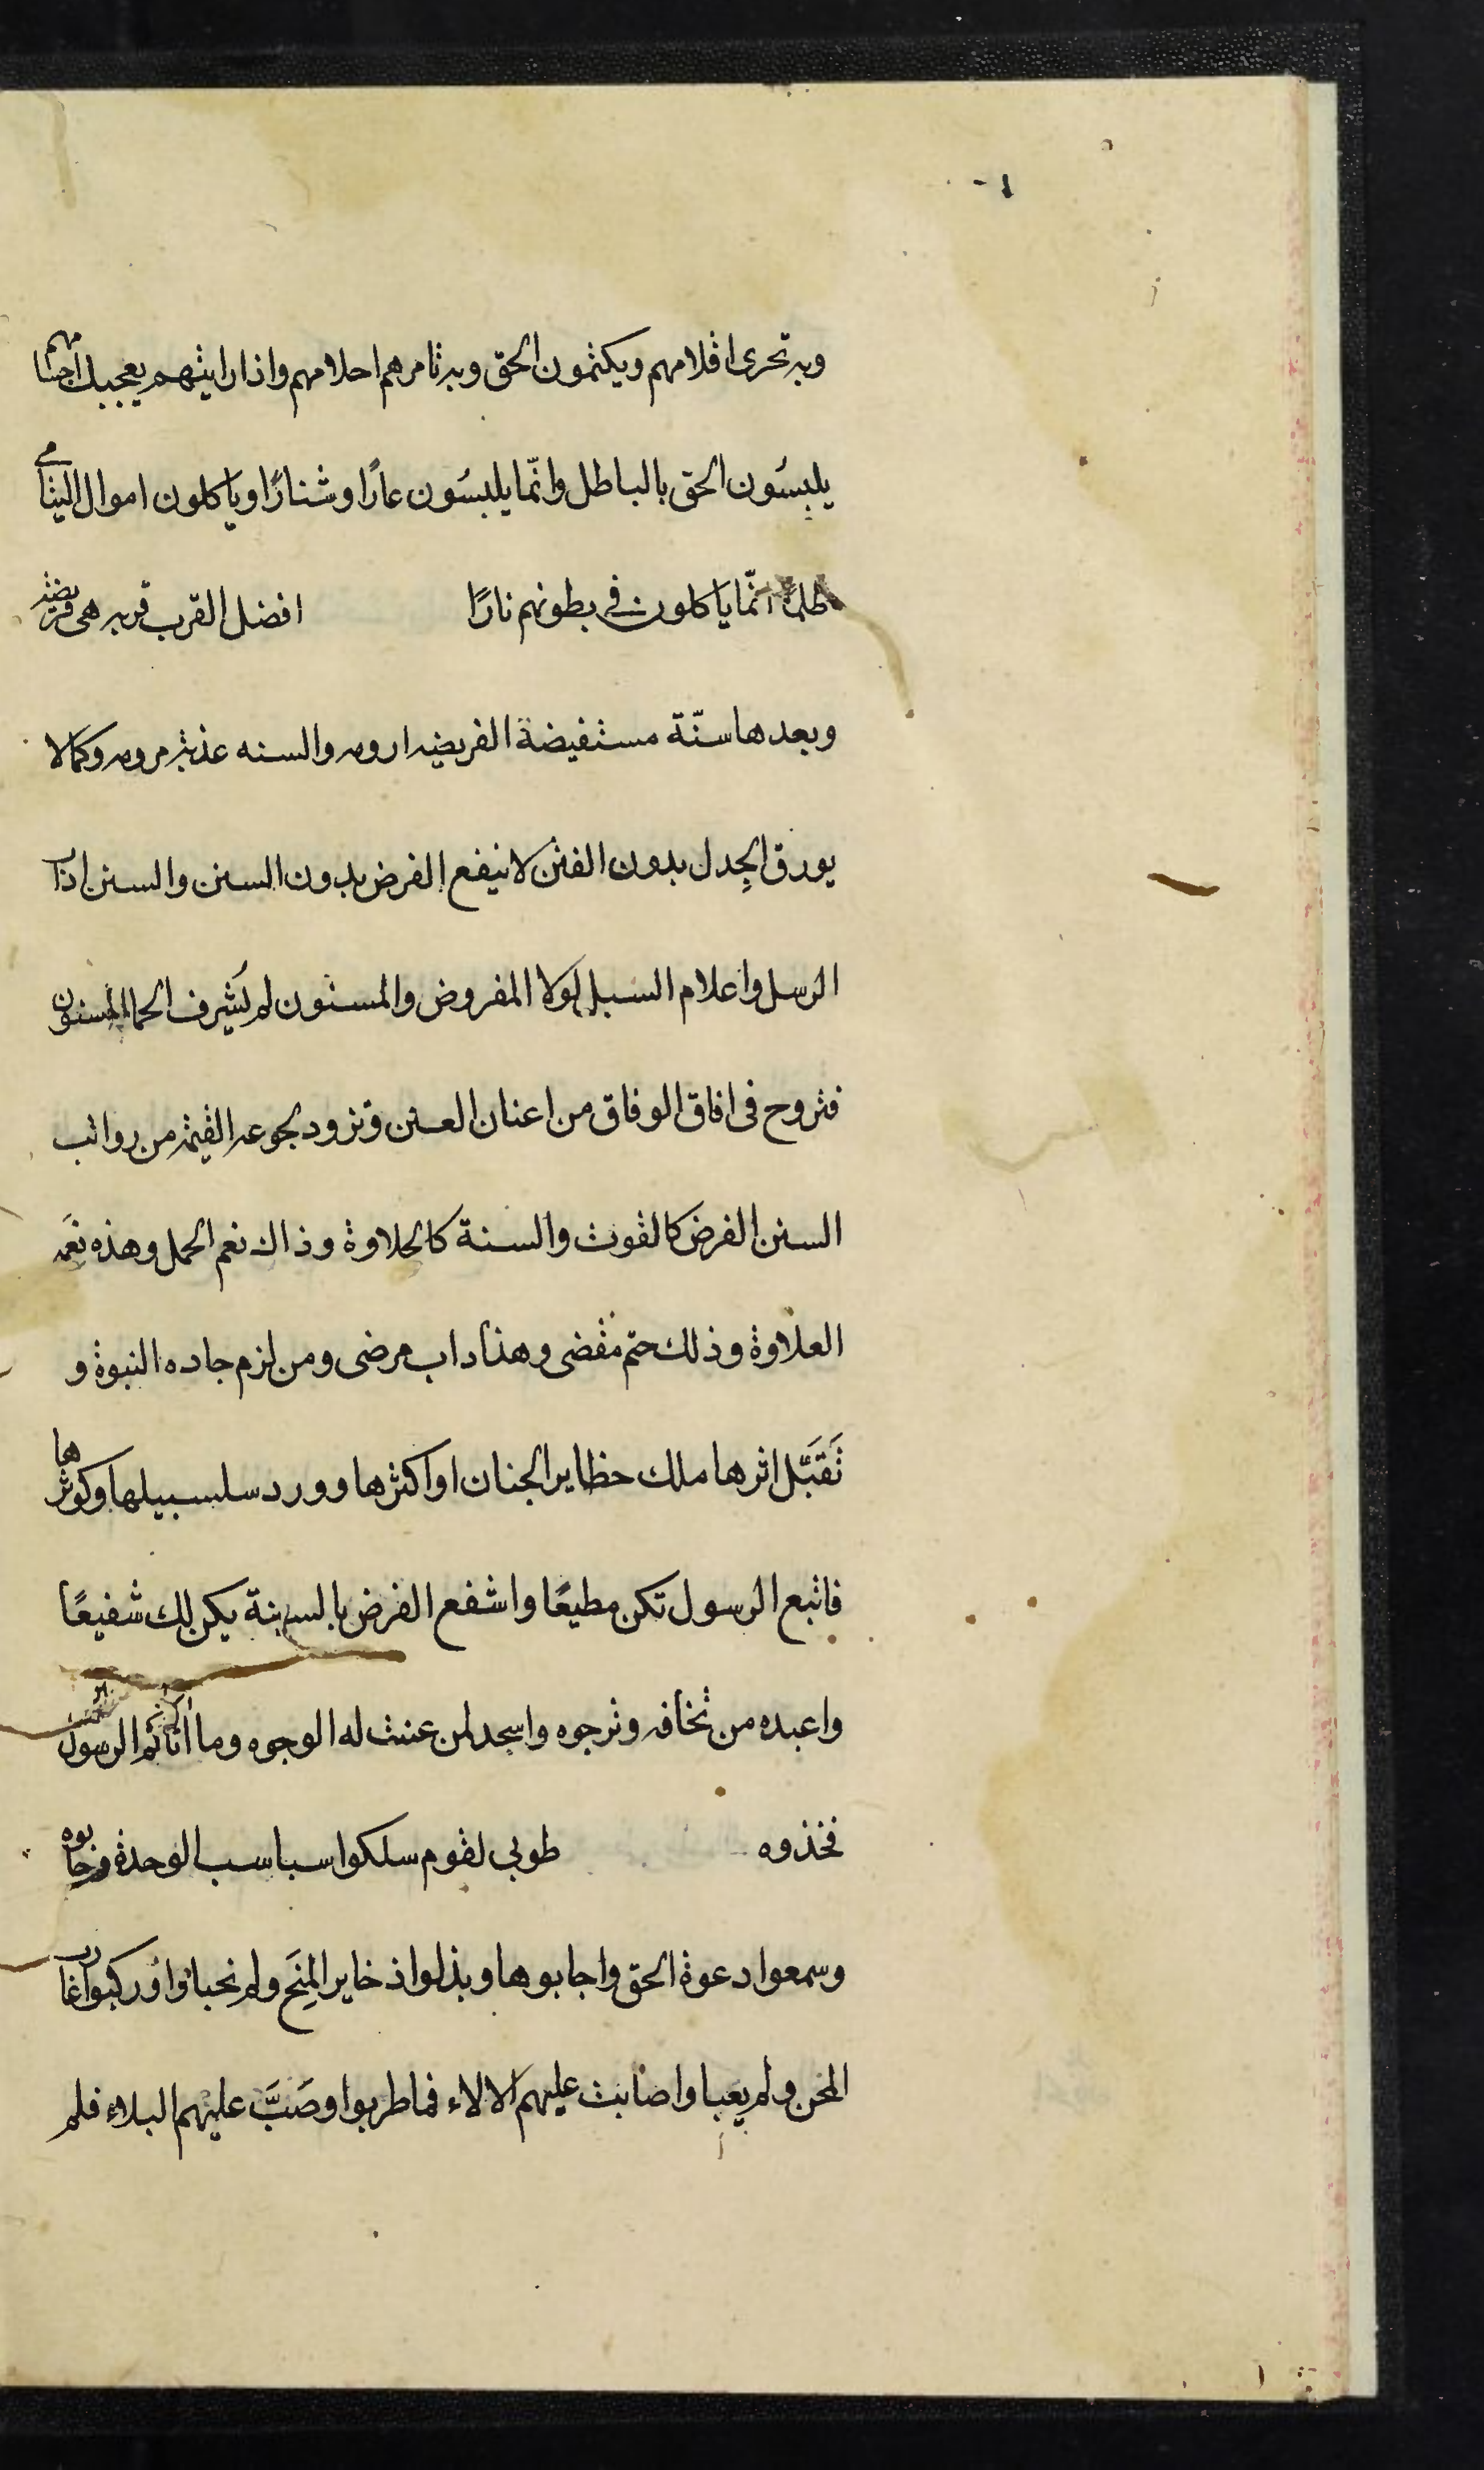 وبه تحرى اقلامهم ويكتمون الحق وبه تامرهم احلامهم واذا رايتهم يعجبك اجسامهم
يلبسُون الحق بالباطل وانّما يلبسُون عارًا وشنارًا وياكلون اموال اليتامى
ظلمًا انّما ياكلون في بطونهم نارًا افضل القرب قربه هى فريضه
وبعدها سنّة مستفيضة الفريضه ارومه والسنه عذبة مرومه وكما لا
يورق الجِدل بدون الفنن لا ينفع الفرض بدون السنن والسنن اداب
الرسل واعلام السبل لولا المفروض والمسنون لم يَشرف الحما المسنون
فتروح فى افاق الوفاق من اعنان العنن وتزود لجوعه القيمة من رواتب
السنن الفرض كالقوت والسنة كالحلاوة وذاك نعم الحمل وهذه نعمَه
العلاوة وذلك حتم مقضى وهذا داب مرضى ومن لزم جاده النبوة و
تَقَبَّل اثرها ملك حظاير الجنان او اكثرها وورد سلسبيلها وكوثرها
فاتبع الرسول تكن مطيعًا واشفع الفرض بالسنة يكن لك شفيعًا
واعبده من تخافه وترجوه واسجد لمن عنت له الوجوه وما اتاكم الرسول
فخذوه طوبى لقوم سلكوا سباسب الوحدة وجابوه
وسمعوا دعوة الحق واجابوها وبذلوا ذخاير المِنَح ولم وركبوا غارب
المحن ولم يعبا واصابت عليهم الالاء فما طربوا وصَبَّ عليهم البلاء فلم